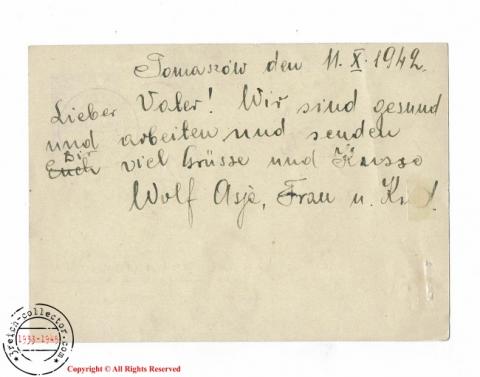 Tomaszów den 11.X.1942.
Lieber Vater! Wir sind gesund
und arbeiten und senden
Dir
Euch viel Grüsse und Küsse
Wolf Asje, Frau u. K
3reich-collector.com
1933-1945
Copyright © All Rights Reserved